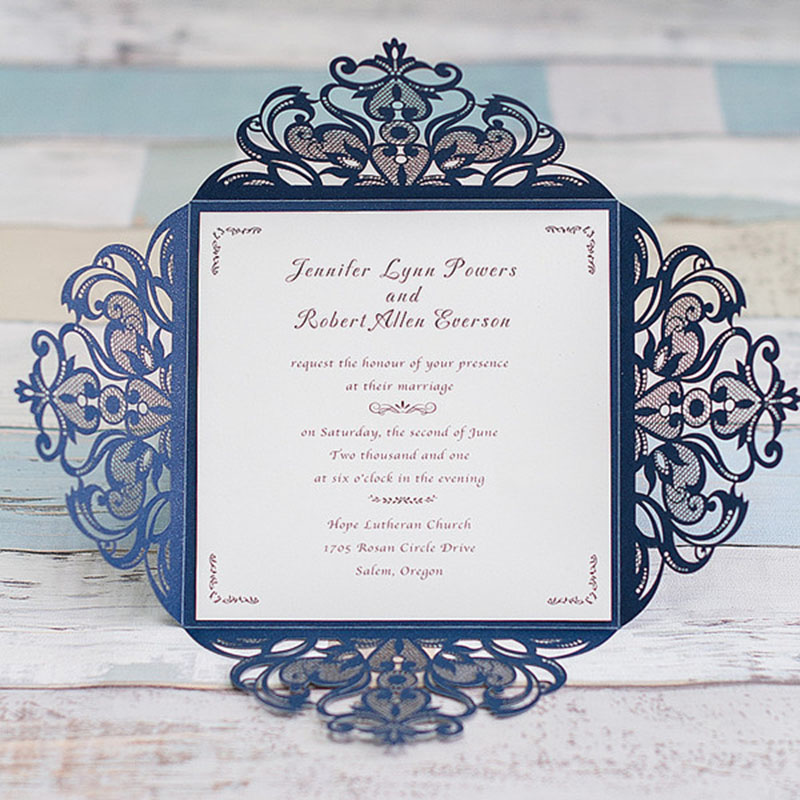 Jennifer Lynn Powers
and
Robert Allen Everson
request the honour of your presence
at their marriage
on Saturday, the second of June
Two thousand and one
at six o'clock in the evening
Hope Lutheran Church
1705 Rosan Circle Drive
Salem, Oregon